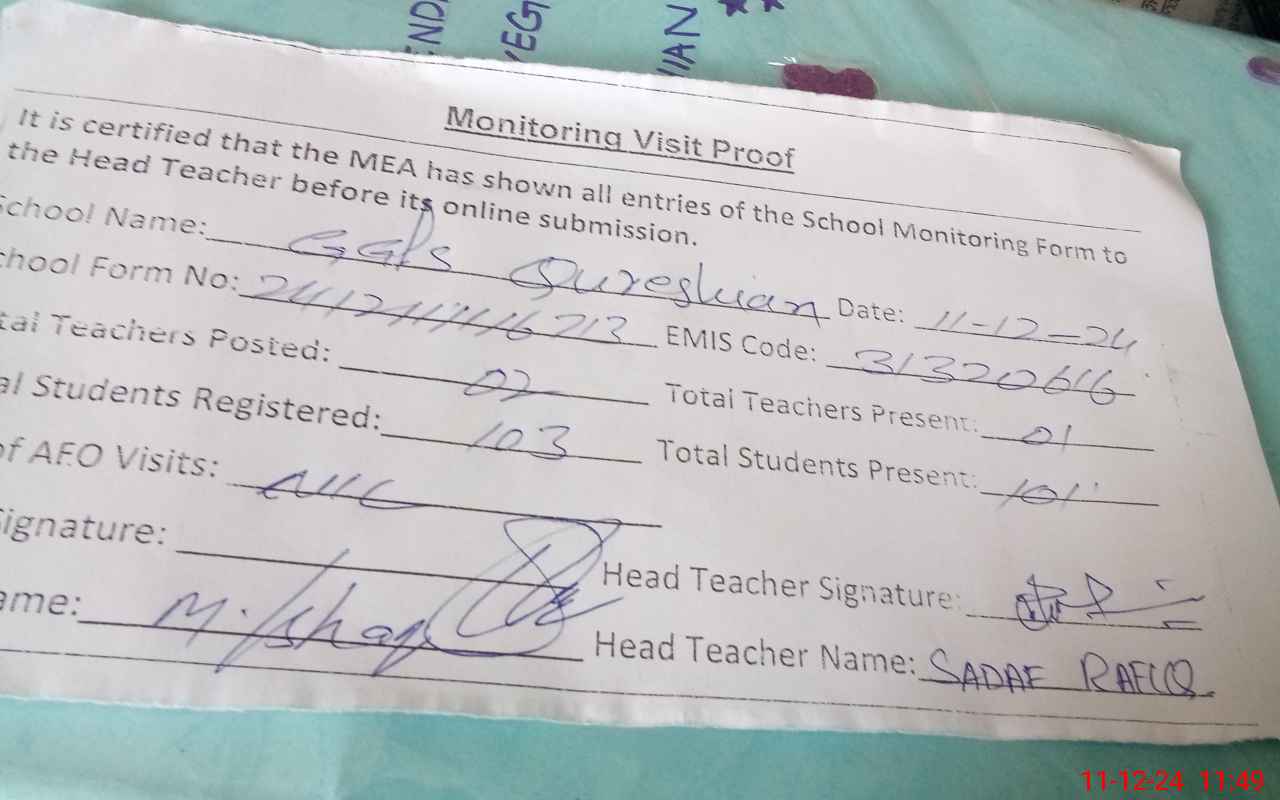 END
VEG
IAN
Monitoring Visit Proof
It is certified that the MEA has shown all entries of the School Monitoring Form to
the Head Teacher before its online submission.
School Name: GGPS Qureshian Date: 11-12-24
chool Form No: EMIS Code: 31320616
tal Teachers Posted: 02 Total Teachers Present: 01
al Students Registered: 103 Total Students Present: 101
of AEO Visits:
Signature: Head Teacher Signature:
ame: M. Ishaq Head Teacher Name: SADAF RAFIQ
11-12-24 11:49